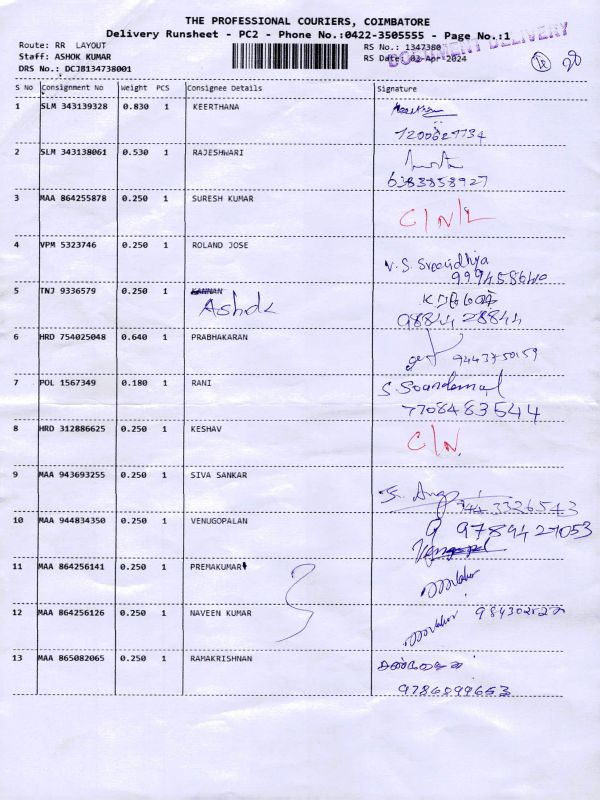 THE PROFESSIONAL COURIERS, COIMBATORE
Delivery Runsheet - PC2 - Phone No.:0422-3505555 - Page No.:1
DOCUMENT DELIVERY
Route: RR LAYOUT RS No.: 1347380
Staff: ASHOK KUMAR RS Date: 02-Apr-2024
DRS No.: DCJB134738001
S No Consignment No Weight PCS Consignee Details Signature
1 SLM 343139328 0.830 1 KEERTHANA
2 SLM 343138061 0.530 1 RAJESHWARI
6383858927
3 MAA 864255878 0.250 1 SURESH KUMAR
4 VPM 5323746 0.250 1 ROLAND JOSE
V. S. Sreevidhya
5 TNJ 9336579 0.250 1 KANNAN
Ashok
98844 28844
6 HRD 754025048 0.640 1 PRABHAKARAN
7 POL 1567349 0.180 1 RANI
7708483544
8 HRD 312886625 0.250 1 KESHAV
C/N.
9 MAA 943693255 0.250 1 SIVA SANKAR
944 3326543
10 MAA 944834350 0.250 1 VENUGOPALAN
9789427053
11 MAA 864256141 0.250 1 PREMAKUMAR
12 MAA 864256126 0.250 1 NAVEEN KUMAR
13 MAA 865082065 0.250 1 RAMAKRISHNAN
9786899653